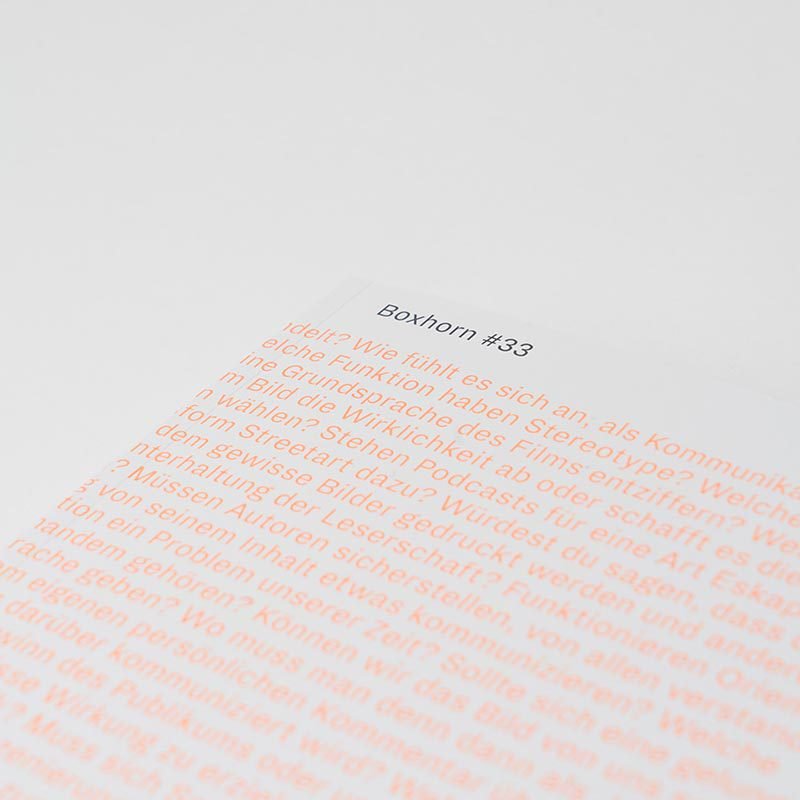 Boxhorn #33
delt? Wie fühlt es sich an, als Kommunika
elche Funktion haben Stereotype? Welche
ine Grundsprache des Films entziffern? We
m Bild die Wirklichkeit ab oder schafft es die
n wählen? Stehen Podcasts für eine Art Eskap
form Streetart dazu? Würdest du sagen, dass
dem gewisse Bilder gedruckt werden und ander
nterhaltung der Leserschaft? Funktionieren Orien
? Müssen Autoren sicherstellen, von allen verstan
s von seinem Inhalt etwas kommunizieren? Welche
tion ein Problem unserer Zeit? Sollte sich eine gelun
mandem gehören? Können wir das Bild von uns
rache geben? Wo muss man denn dann als
m eigenen persönlichen Kommentar
darüber kommuniziert wird? We
winn des Publikums oder
se Wirkung zu erzie
? Muss sich